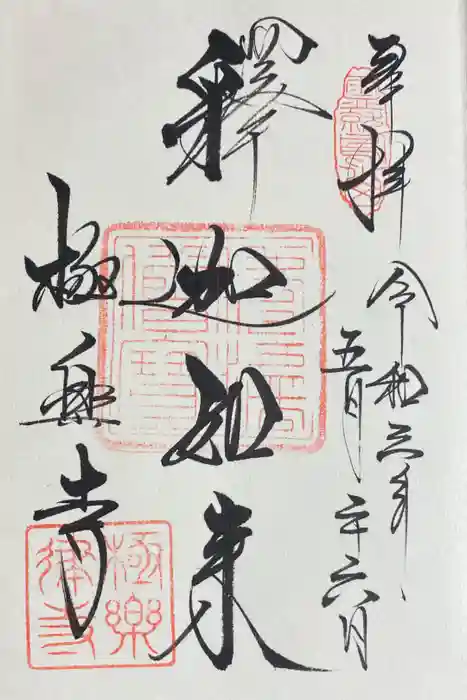 奉拝 令和三年
五月二十六日
釋迦如来
極楽寺
極樂
律寺